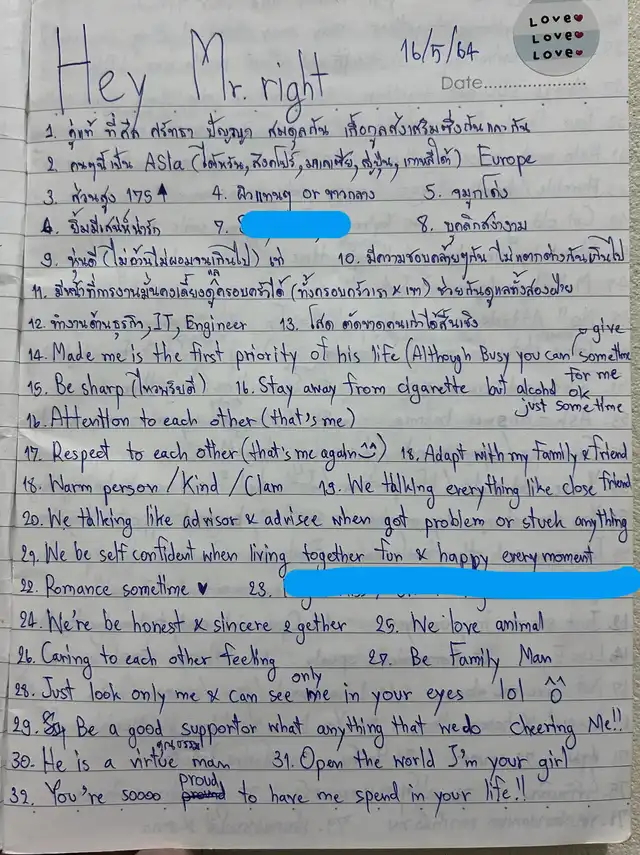 LOVE♥
LOVE♥
LOVE♥
Hey Mr. right 16/5/64
Date....................
1. คู่แท้ ที่ศีล ศรัทธา ปัญญา สมดุลกัน เกื้อกูลส่งเสริมซึ่งกันและกัน
2. คนๆนี้เป็น Asia (ไต้หวัน, สิงคโปร์, มาเลเซีย, ญี่ปุ่น, เกาหลีใต้) Europe
3. ส่วนสูง 175↑ 4. ผิวแทนๆ or ขาวกลาง 5. จมูกโด่ง
6. ยิ้มมีเสน่ห์น่ารัก 7. 8. บุคลิกสง่างาม
9. หุ่นดี (ไม่อ้วนไม่ผอมจนเกินไป) เท่ 10. มีความชอบคล้ายๆกัน ไม่แตกต่างกันเกินไป
11. มีหน้าที่การงานมั่นคงเลี้ยงดูแลครอบครัวได้ (ทั้งครอบครัวเรา & เขา) ช่วยกันดูแลทั้งสองฝ่าย
12. ทำงานด้านธุรกิจ, IT, Engineer 13. โสด ตัดขาดคนเก่าได้สิ้นเชิง
14. Made me is the first priority of his life (Although Busy you can give sometime for me
15. Be sharp (ไหวพริบดี) 16. Stay away from cigarette but alcohol ok just sometime
16. Attention to each other (that's me)
17. Respect to each other (that's me again ^^) 18. Adapt with my family & friend
18. Warm person / Kind / Clam 19. We talking everything like close friend
20. We talking like advisor & advisee when got problem or stuck anything
21. We be self confident when living together fun & happy every moment
22. Romance sometime ♥ 23.
24. We're be honest & sincere 2gether 25. We love animal
26. Caring to each other feeling 27. Be Family Man
28. Just look only me & can see only me in your eyes lol
29. Be a good supportor what anything that we do cheering Me!!
30. He is a virtue คุณธรรม man 31. Open the world I'm your girl
32. You're soooo proud to have me spend in your life!!